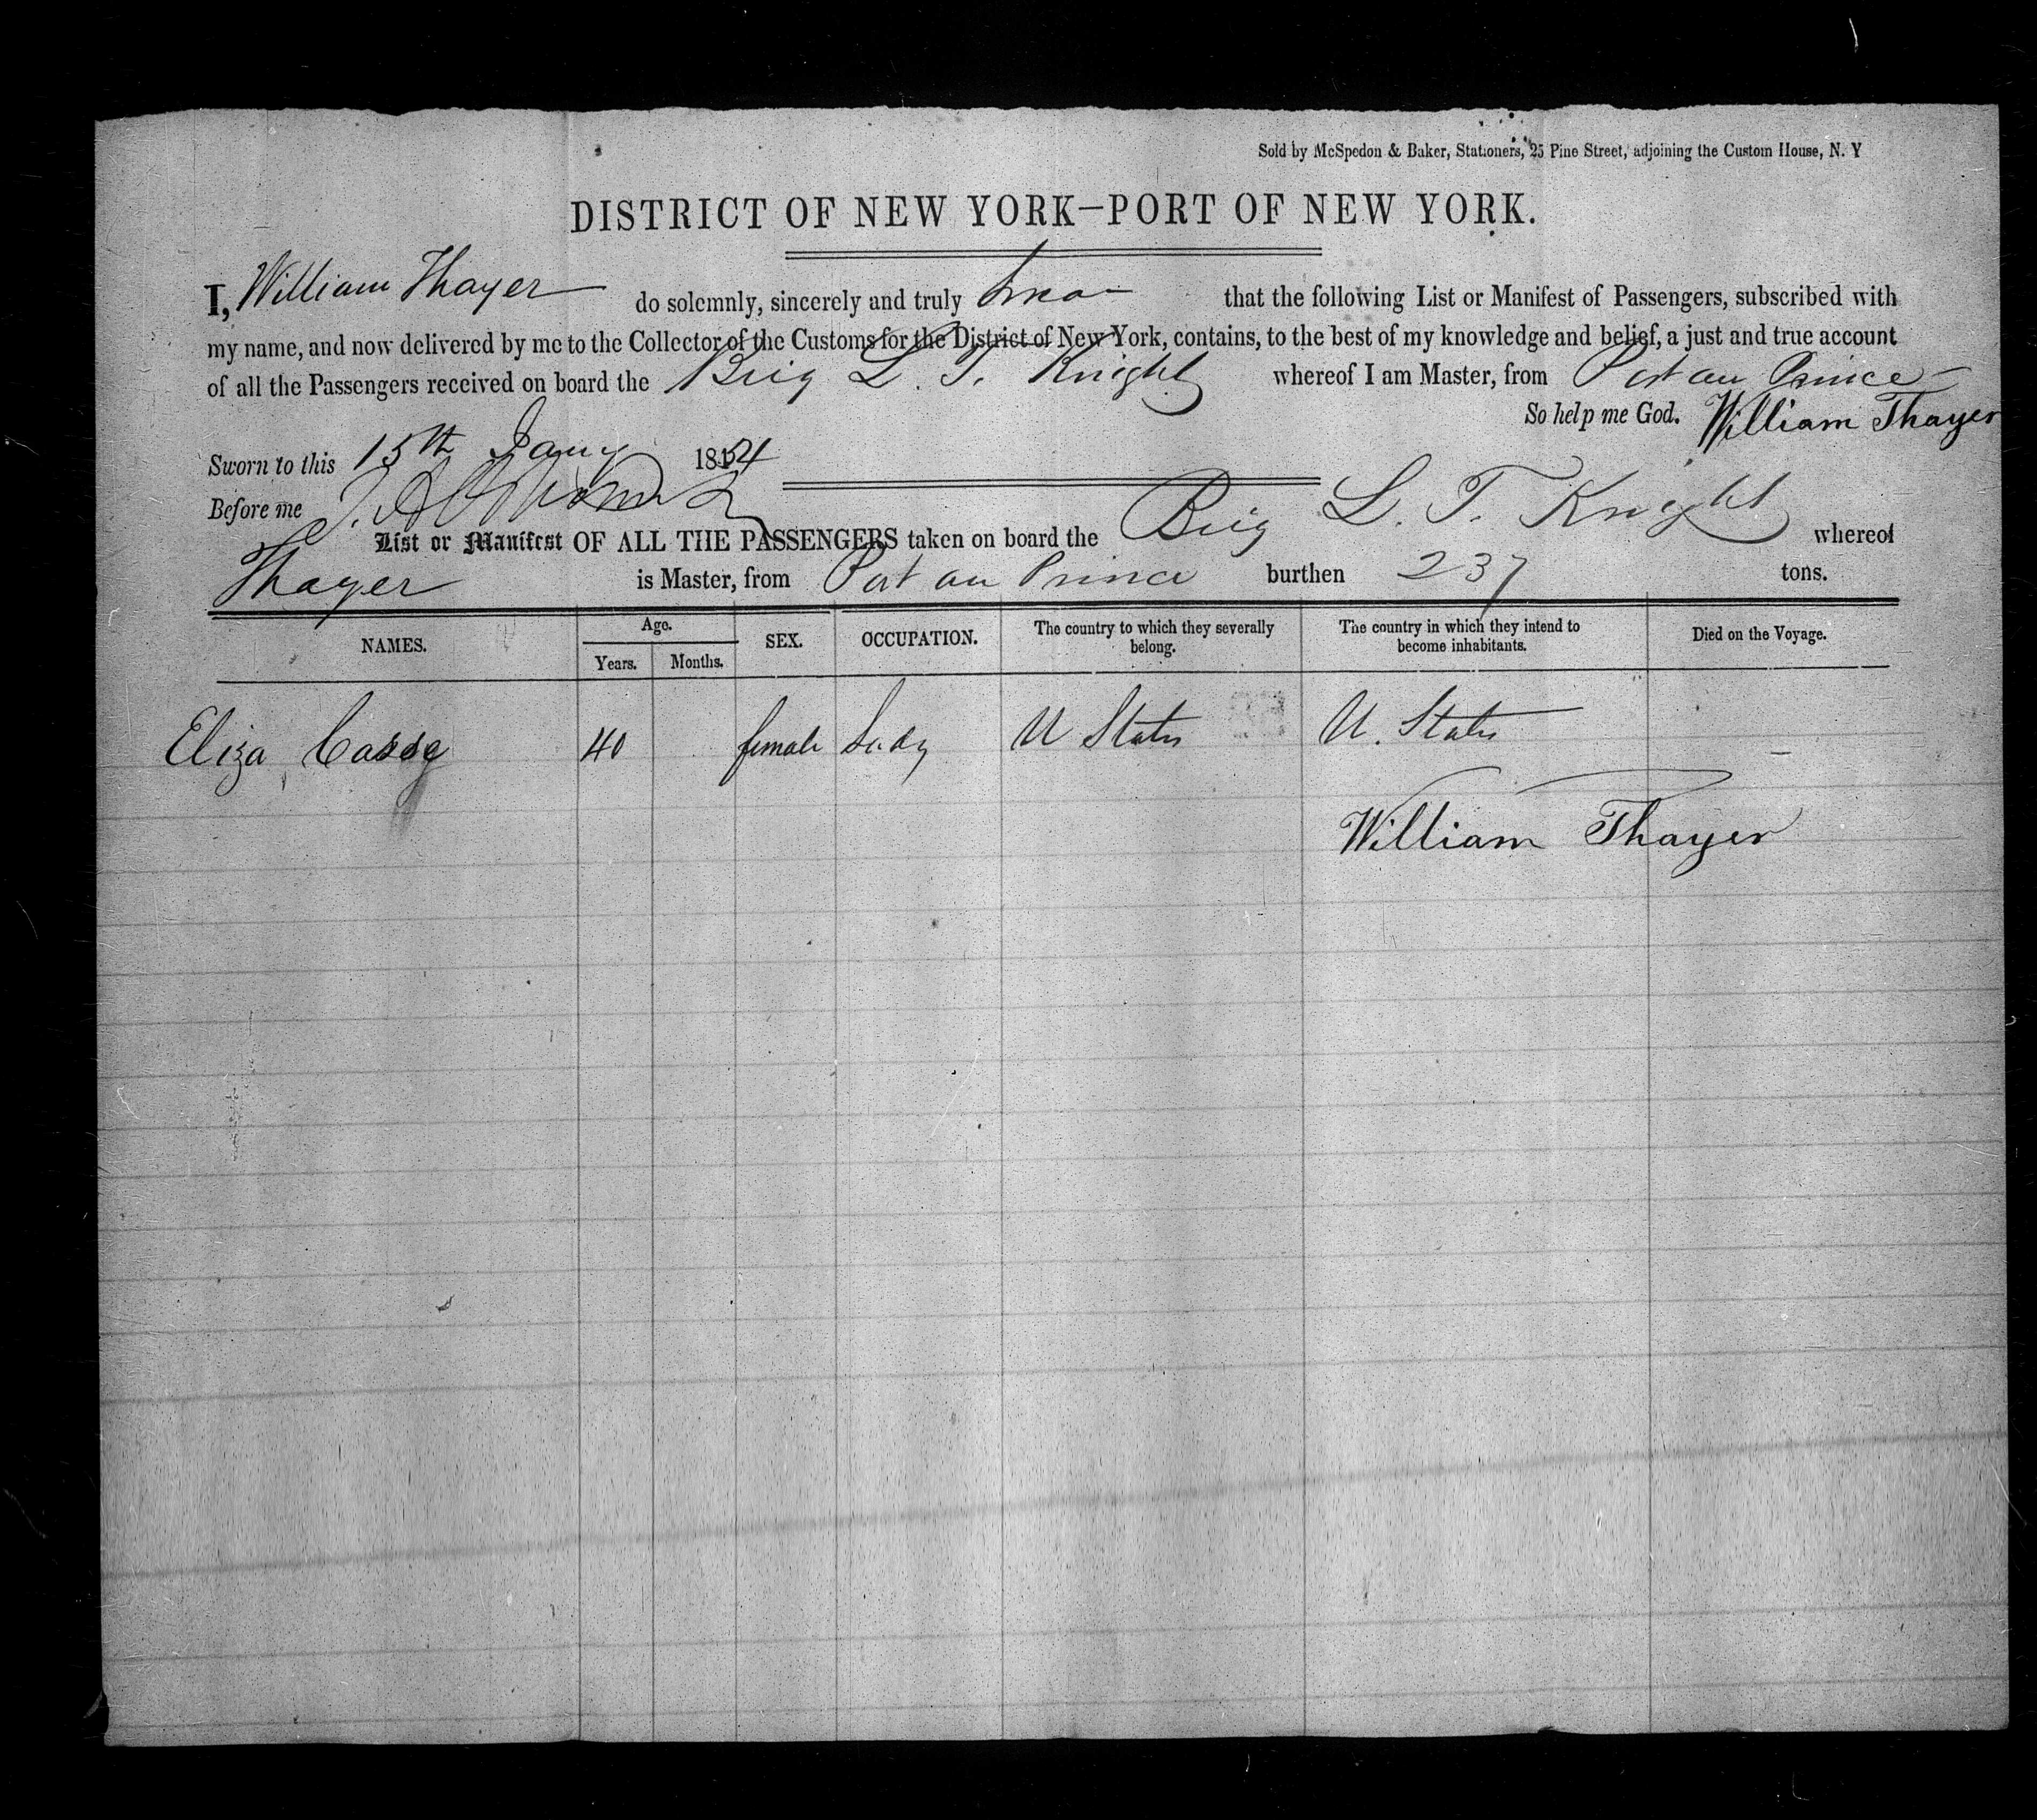 Sold by McSpedon & Baker, Stationers, 25 Pine Street, adjoining the Custom House, N. Y
DISTRICT OF NEW YORK—PORT OF NEW YORK.
I, William Thayer do solemnly, sincerely and truly that the following List or Manifest of Passengers, subscribed with
my name, and now delivered by me to the Collector of the Customs for the District of New York, contains, to the best of my knowledge and belief, a just and true account
of all the Passengers received on board the Brig L. T. Knight whereof I am Master, from Port au Prince
So help me God. William Thayer
Sworn to this 15th Jany 1854
Before me
List or Manifest OF ALL THE PASSENGERS taken on board the Brig L. T. Knight whereof
Thayer is Master, from Port au Prince burthen 237 tons.
NAMES. Age. Years. Months. SEX. OCCUPATION. The country to which they severally belong. The country in which they intend to become inhabitants. Died on the Voyage.
Eliza Cassg 40 female Lady U States U. States –
William Thayer